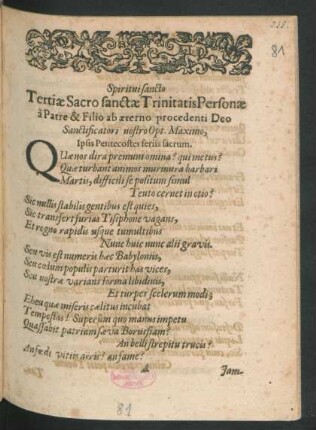 81
Spiritui sancto
Tertiæ Sacro sanctæ Trinitatis Personæ
à Patre & Filio ab æterno procedenti Deo
Sanctificatori nostro Opt. Maximo,
Ipsis Pentecostes feriis sacrum.
Quæ nos dira premunt omina? qui metus?
Quæ turbant animos murmura barbari
Martis, difficili se positum simul
Teuto cernet in otio?
Sic nullis stabilis gentibus est quies,
Sic transfert furias Tisiphone vagans,
Et regno rapidis usque tumultibus
Nunc huic nunc alii gravis.
Seu vis est numeris hæc Babyloniis,
Seu cælum populis parturit has vices,
Seu nostræ varians forma libidinis,
Et turpes scelerum modi;
Eheu quæ miseris cælitus incubat
Tempestas! Superûm quo manus impetu
Quassabit patriam sæva Borussiam?
An belli strepitu trucis?
An fœdi vitio aëris? an fame?
A
Jam-
81